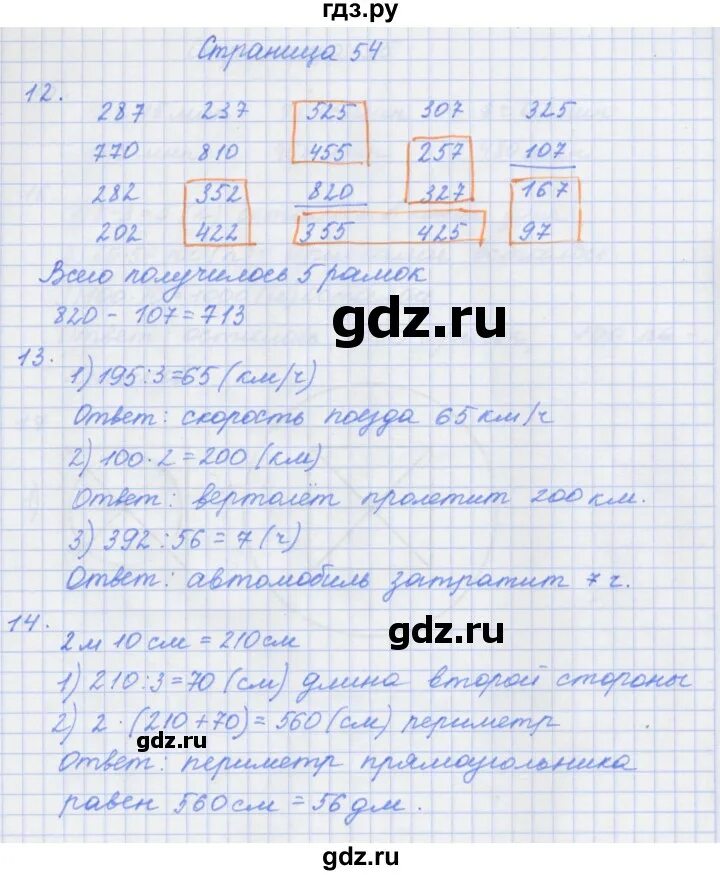 гдз.ру
Страница 54
12.
287 237 525 307 325
770 810 455 257 107
282 352 820 327 167
202 422 355 425 97
Всего получилось 5 рамок
820 - 107 = 713
gdz.ru
13.
1) 195 : 3 = 65 (км/ч)
Ответ: скорость поезда 65 км/ч
2) 100 · 2 = 200 (км)
Ответ: вертолёт пролетит 200 км.
3) 392 : 56 = 7 (ч)
Ответ: автомобиль затратит 7 ч.
14.
gdz.ru
2 м 10 см = 210 см
1) 210 : 3 = 70 (см) длина второй стороны
2) 2 · (210 + 70) = 560 (см) периметр
gdz.ru
Ответ: периметр прямоугольника
равен 560 см = 56 дм.
gdz.ru